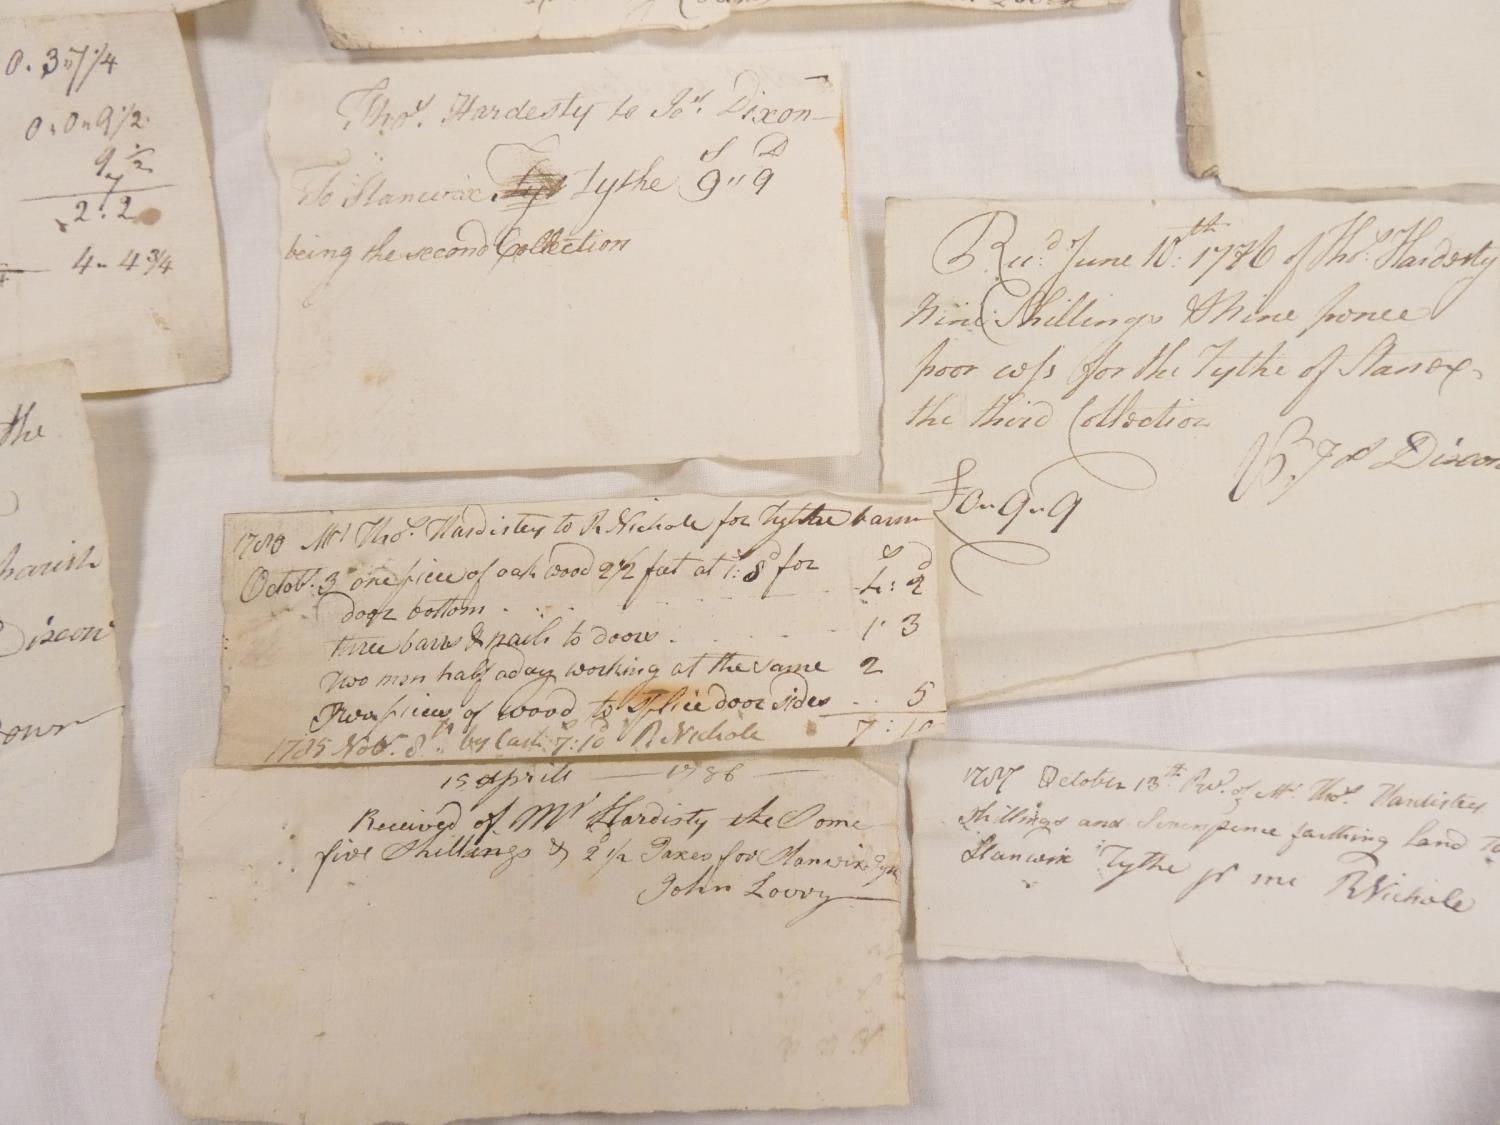 0. 3 " 7 1/4
0 " 0 " 9 1/2
9 1/2
2. 2
4 " 4 3/4
Tho.s Hardesty to Jos. Dixon
S D
To Stanwix Tythe 9 " 9
being the second Collection
Rec.d June 10.th 1786 of Tho.s Hardesty
Nine Shillings & Nine pence
poor cess for the Tythe of Stanex
the third Collection
Jos Dixon
£0 " 9 " 9
the
parish
Dixon
Mr Tho.s Hardistey to R Nichole for Tythe barn
S D
Octobr. 3 one piece of oak wood 2 1/2 feet at 1:8d for
door bottom . . . 4: 2
three barrs & nails to doors . . . 1 3
two men half a day working at the same 2
Two pieces of wood to splice door sides . . . 5
1785 Nov. 8th by Cash 7:10 R Nichole 7: 10
15 aprill — 1786 —
Received of Mr Hardisty the Some
five Shillings & 2d 1/2 Taxes for Stanwix Tyth
John Lowry
1787 October 13th Rd. of Mr Tho.s Hardistey
Shillings and Sevenpence farthing Land
Stanwix Tythe pr me R Nichole